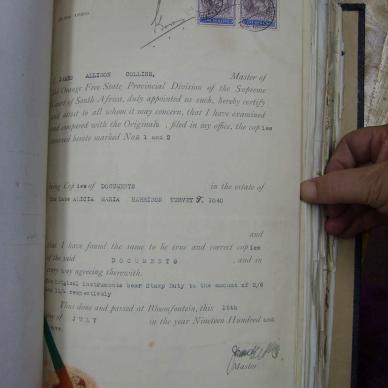 JAMES ALLISON COLLINS, Master of
the Orange Free State Provincial Division of the Supreme
Court of South Africa, duly appointed as such, hereby certify
and attest to all whom it may concern, that I have examined
and compared with the Originals, filed in my office, the copies
annexed hereto marked Nos 1 and 2
being Copies of DOCUMENTS in the estate of
the late ALICIA MARIA HARRISON TURVEY
and
that I have found the same to be true and correct copies
of the said DOCUMENTS, and in
every way agreeing therewith.
The original instruments bear Stamp Duty to the amount of 2/6
and respectively
Thus done and passed at Bloemfontein, this
day of JULY in the year Nineteen Hundred and
Master